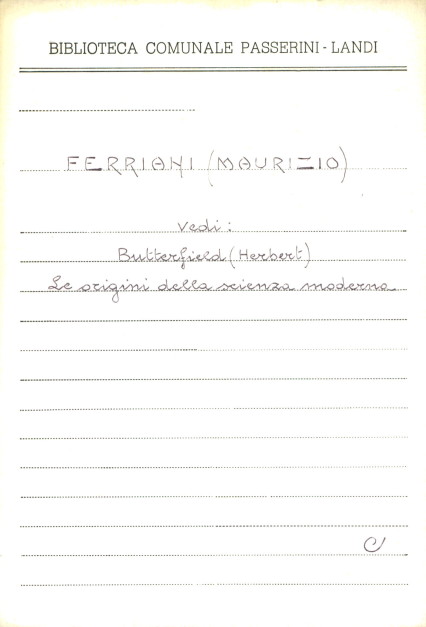 BIBLIOTECA COMUNALE PASSERINI - LANDI
FERRIANI (MAURIZIO)
Vedi :
Butterfield (Herbert)
Le origini della scienza moderna